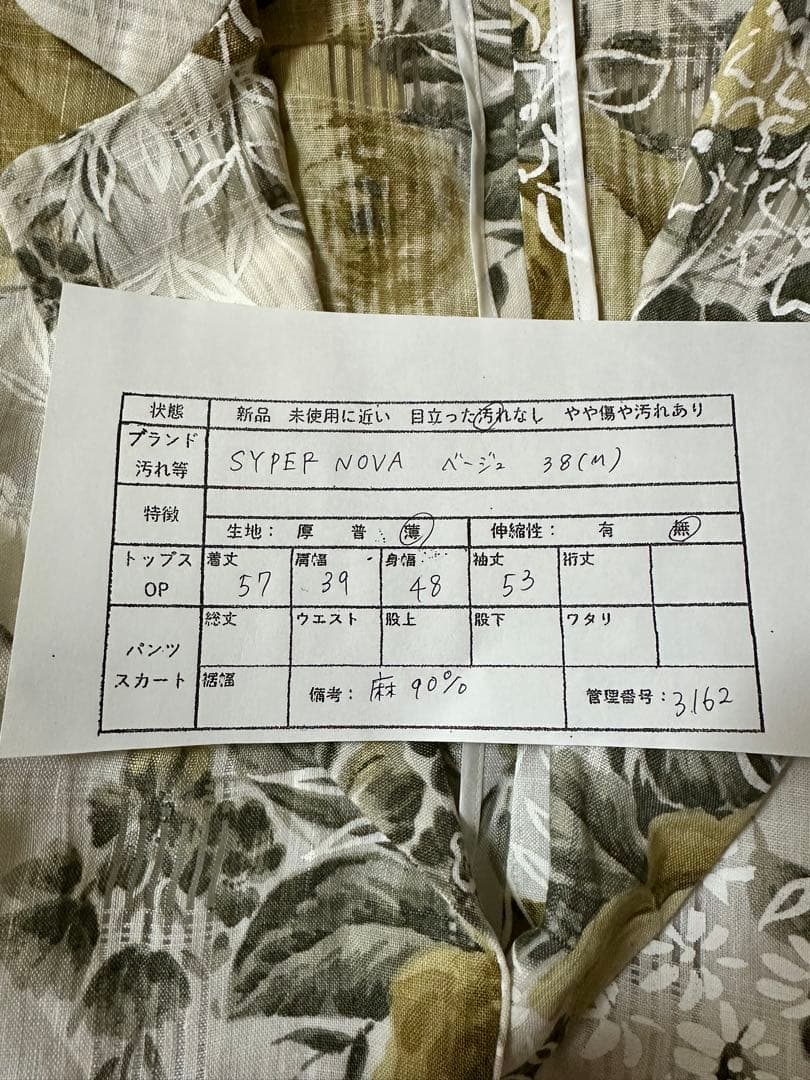 状態 新品 未使用に近い 目立った汚れなし やや傷や汚れあり
ブランド
汚れ等 SYPER NOVA ベージュ 38(M)
特徴
生地: 厚 普 薄 伸縮性: 有 無
トップス
OP
着丈 肩幅 身幅 袖丈 裄丈
57 39 48 53
パンツ
スカート
総丈 ウエスト 股上 股下 ワタリ
裾幅 備考: 麻 90% 管理番号: 3162